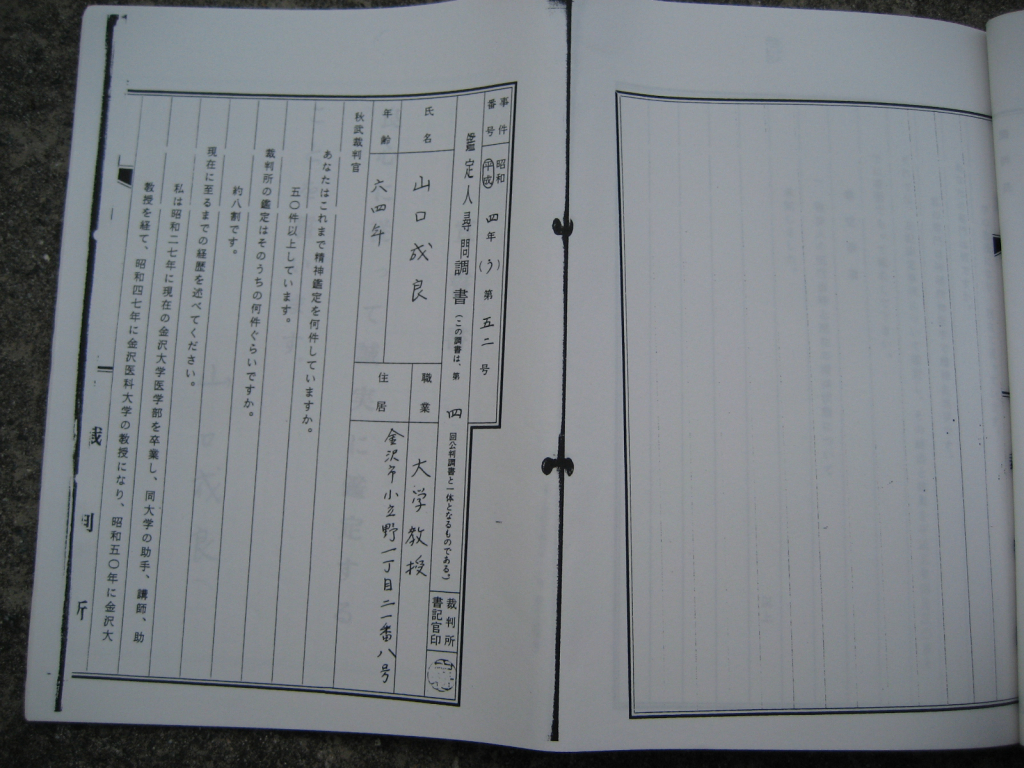 事件番号
昭和
平成
四年(う)第五二号
鑑定人尋問調書(この調書は、第四回公判調書と一体となるものである。)
裁判所書記官印
氏名
山口成良
職業
大学教授
年齢
六四年
住居
金沢市小立野一丁目二一番八号
秋武裁判官
あなたはこれまで精神鑑定を何件していますか。
五〇件以上しています。
裁判所の鑑定はそのうちの何件ぐらいですか。
約八割です。
現在に至るまでの経歴を述べてください。
私は昭和二七年に現在の金沢大学医学部を卒業し、同大学の助手、講師、助
教授を経て、昭和四七年に金沢医科大学の教授になり、昭和五〇年に金沢大
裁判所